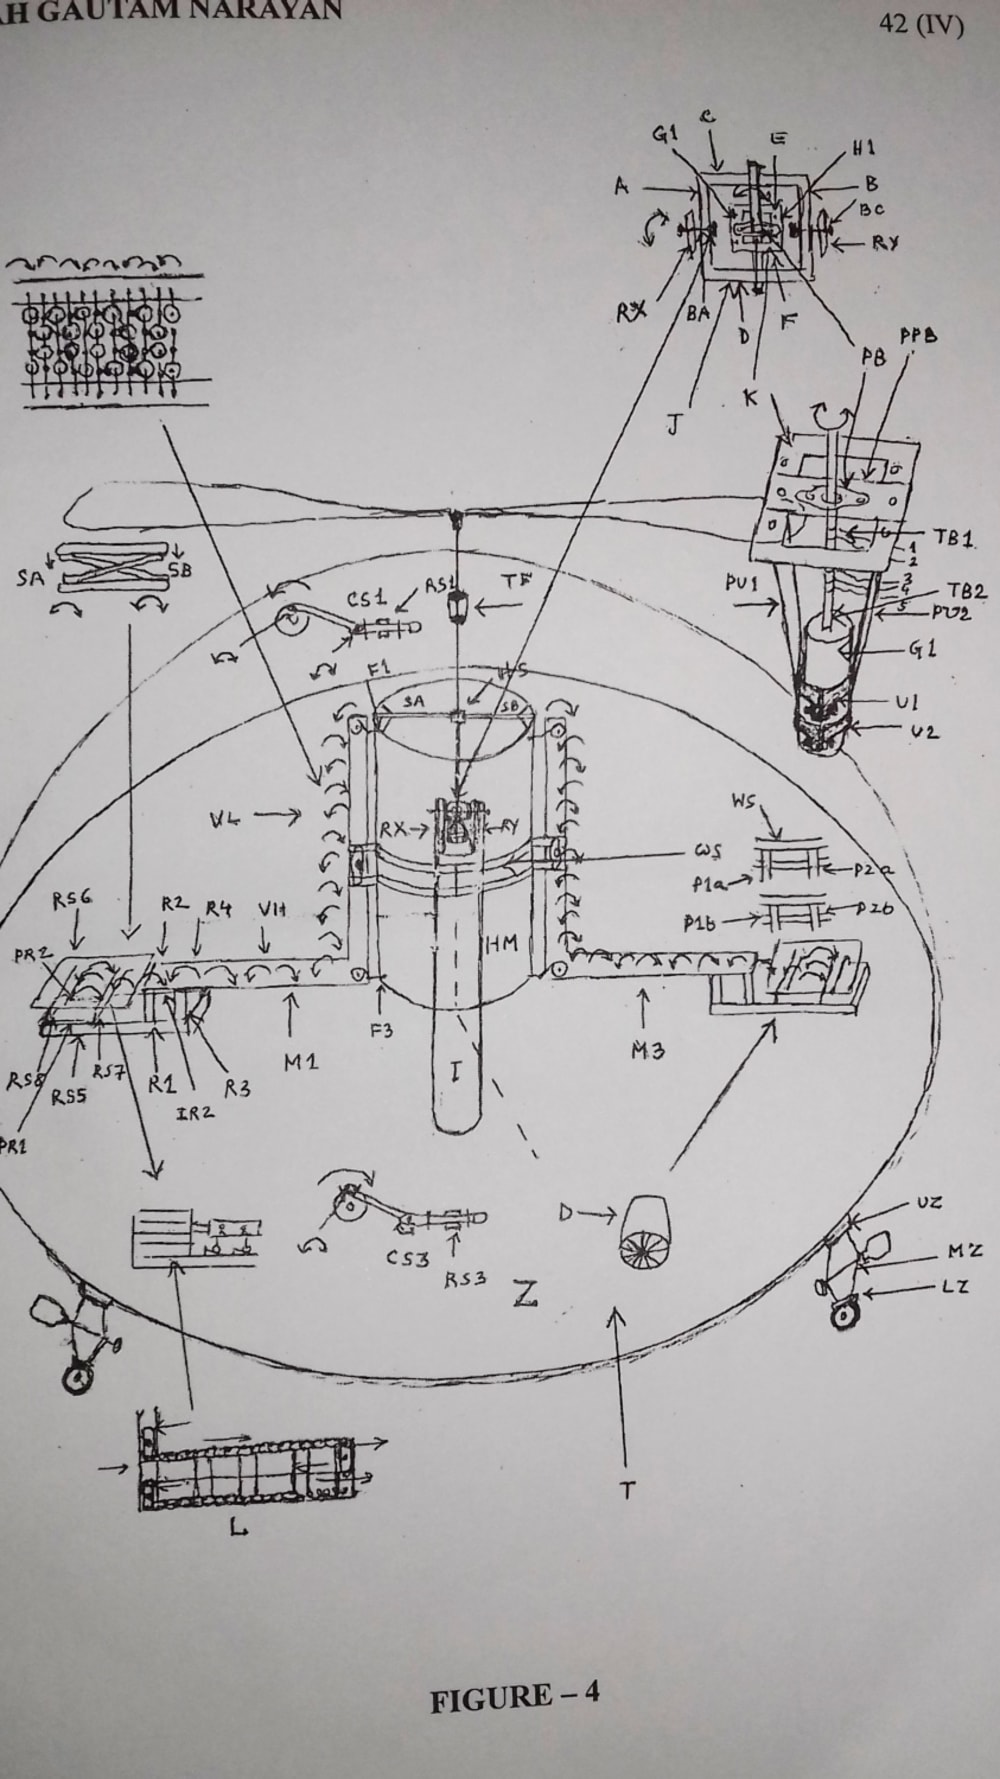 AH GAUTAM NARAYAN
42 (IV)
C
G1
E
H1
A
B
BC
RY
RX
BA
D
F
J
K
PB
PPB
SA
SB
TB1
1
2
3
4
5
TB2
PU1
PU2
G1
U1
U2
CS1
RS1
TF
F1
SA
SB
VL
RX
RY
WS
WS
P1a
P2a
P1b
P2b
RS6
R2
R4
VH
PR2
HM
F3
M1
M3
I
RS8
RS5
RS7
R1
IR2
R3
PR1
D
CS3
RS3
Z
UZ
MZ
LZ
T
L
FIGURE – 4